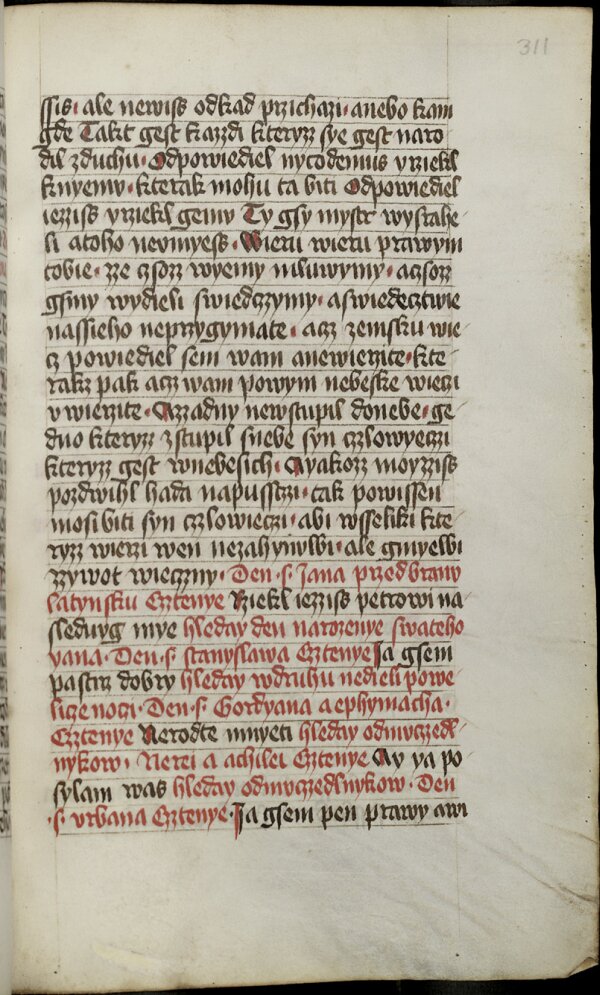 311
ssis· ale newiss odkad przichazi· anebo kam
gde Takt gest kazzdi kteryzz sye gest naro
dil zduchu· Odpowiediel nycodemus y rziekl
knyemv· kterak mohu ta biti Odpowiediel
iezziss y rziekl gemv Ty gsy mystr wystahe
li atoho nevmyess· Wieru wieru prawym
tobie· ze czsozz wyemy mluwymy· aczsozz
gsmy wydieli swiedczymy· aswiedecztwie
nassieho neprzygymate· acz zemsku wie
cz powiediel sem wam anewierzite· kte
rakz pak acz wam powym nebeske wieczi
vwierzite· Azzadny newstupil donebe· ge
dno kteryzz zstupil snebe syn czlowyeczi
kteryzz gest wnebesich· Ayakozz moyzziss
pozdwihl hada napussczi· tak powissen
mosi biti syn czlowieczi· abi wsseliki kte
ryzz wierzi wen nezahynvlbi· ale gmyelbi
zzywot wieczny· Den ·s· Jana przed branv
latynsku Cztenye Rziekl iezziss petrowi na
sleduyg mye hleday den narozenye swateho
yana· Den ·s· stanyslawa Cztenye Ja gsem
pastrz dobry hleday wdruhu nedieli powe
licze noczi· Den ·s· Gordyana a ephymacha·
Cztenye Nerodte mnyeti hleday odmvczedl
nykow· Nerei a achilei Cztenye Ay ya po
sylam was hleday odmvczedlnykow· Den
·s· vrbana Cztenye· Ja gsem pen prawy awi